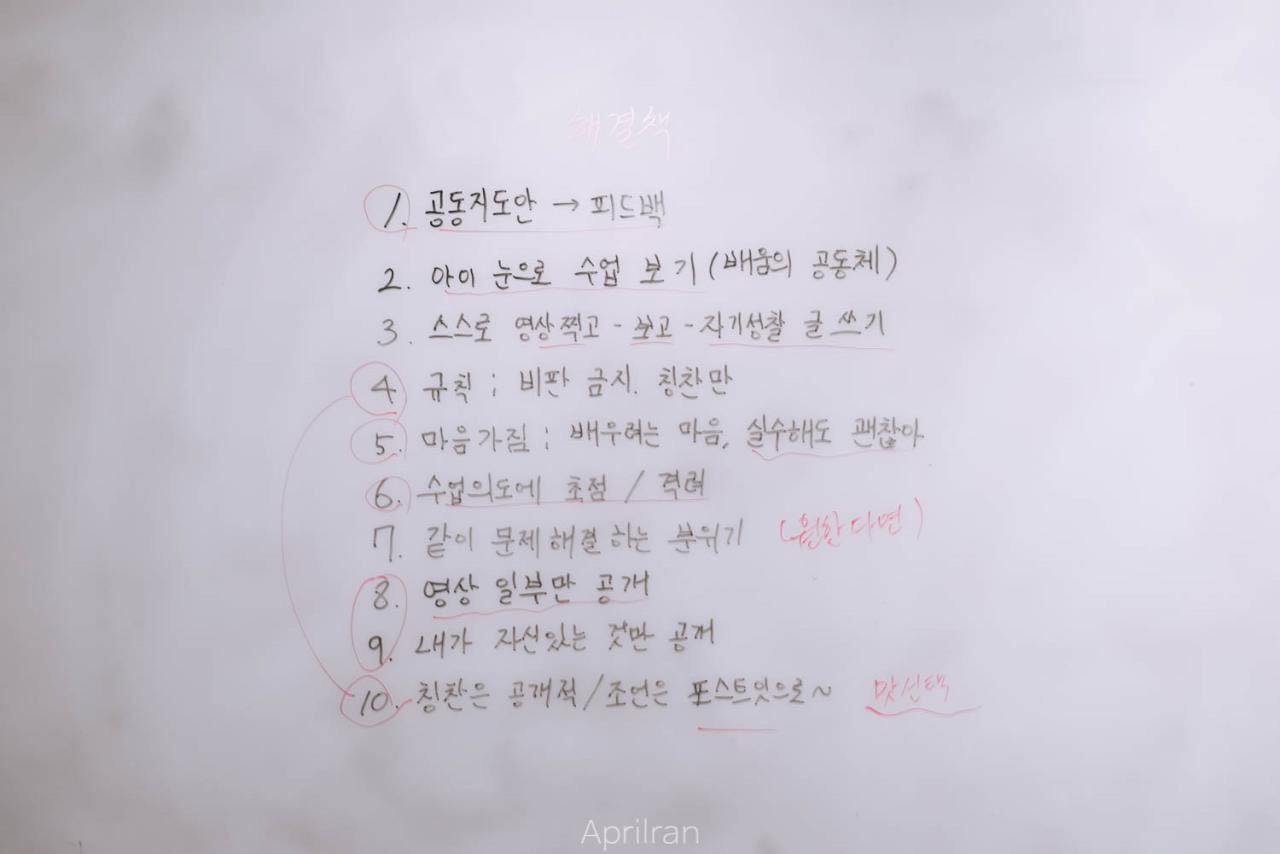 해결책
1. 공동지도안 → 피드백
2. 아이 눈으로 수업 보기 (배움의 공동체)
3. 스스로 영상찍고 - 보고 - 자기성찰 글 쓰기
4 규칙 ; 비판 금지. 칭찬만
5. 마음가짐 ; 배우려는 마음, 실수해도 괜찮아
6. 수업의도에 초점 / 격려
7. 같이 문제해결 하는 분위기 (원한다면)
8. 영상 일부만 공개
9. 내가 자신있는 것만 공개
10. 칭찬은 공개적 / 조언은 포스트잇으로~
Aprilran